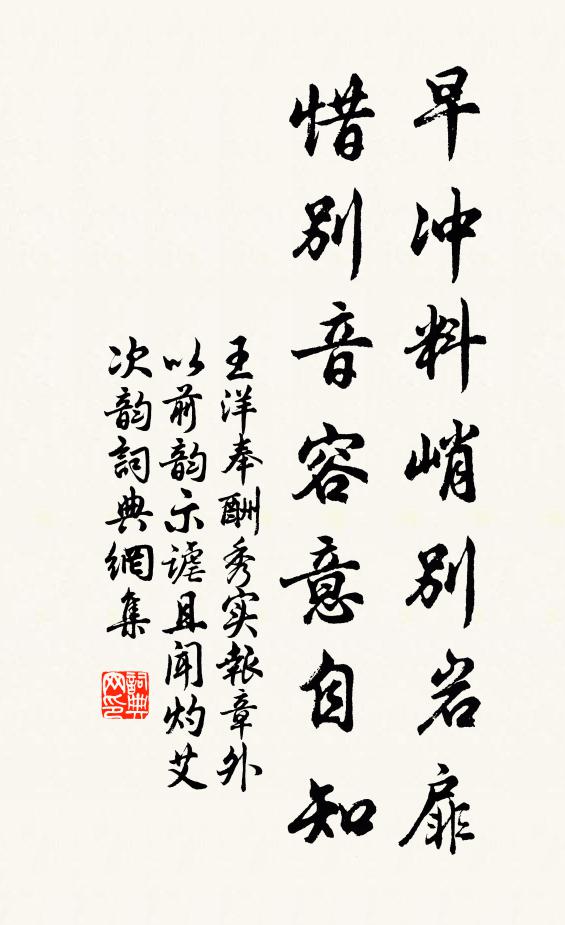 早冲料峭別岩扉
惜別音容意自知
王洋奉酬秀实報章外
以前韵示謔且闻灼艾
次韵詞典網集
詞典网印